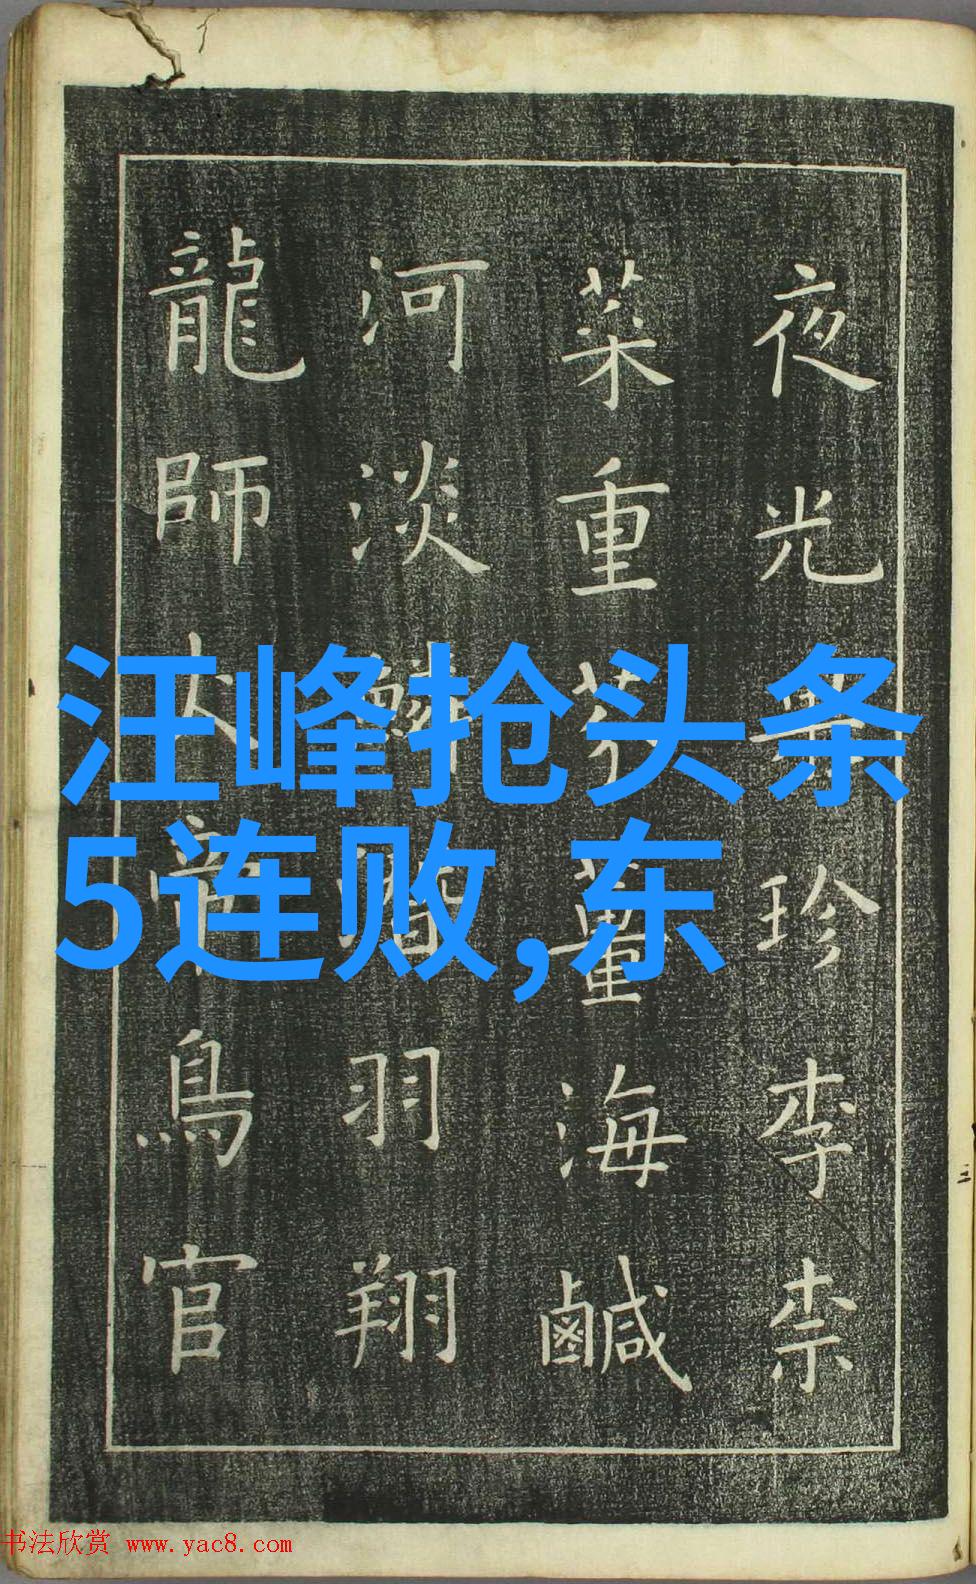 夜光果珍李柰
菜重芥薑海鹹
河淡鱗潛羽翔
龍師火帝鳥官
汪峰抢头条
5连败,东
书法欣赏 www.yac8.com